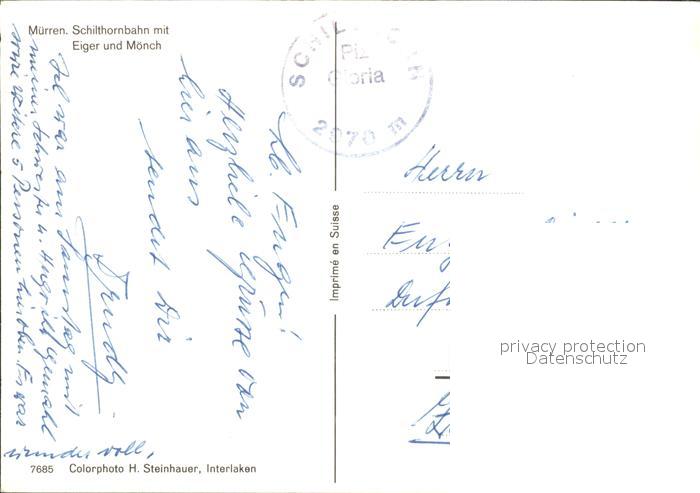 Mürren. Schilthornbahn mit
Eiger und Mönch
SCHILTHORN
Piz
Gloria
2970 m
Lb. Eugen!
Herzliche Grüsse von
hier aus
sendet Dir
Trudy
Ich war am Samstag mit
meiner Schwester u. Gemahl
sowie weitere 5 Personen hier oben Es war
wundervoll,
Imprimé en Suisse
Herrn
Eug
Duf
privacy protection
Datenschutz
7685 Colorphoto H. Steinhauer, Interlaken